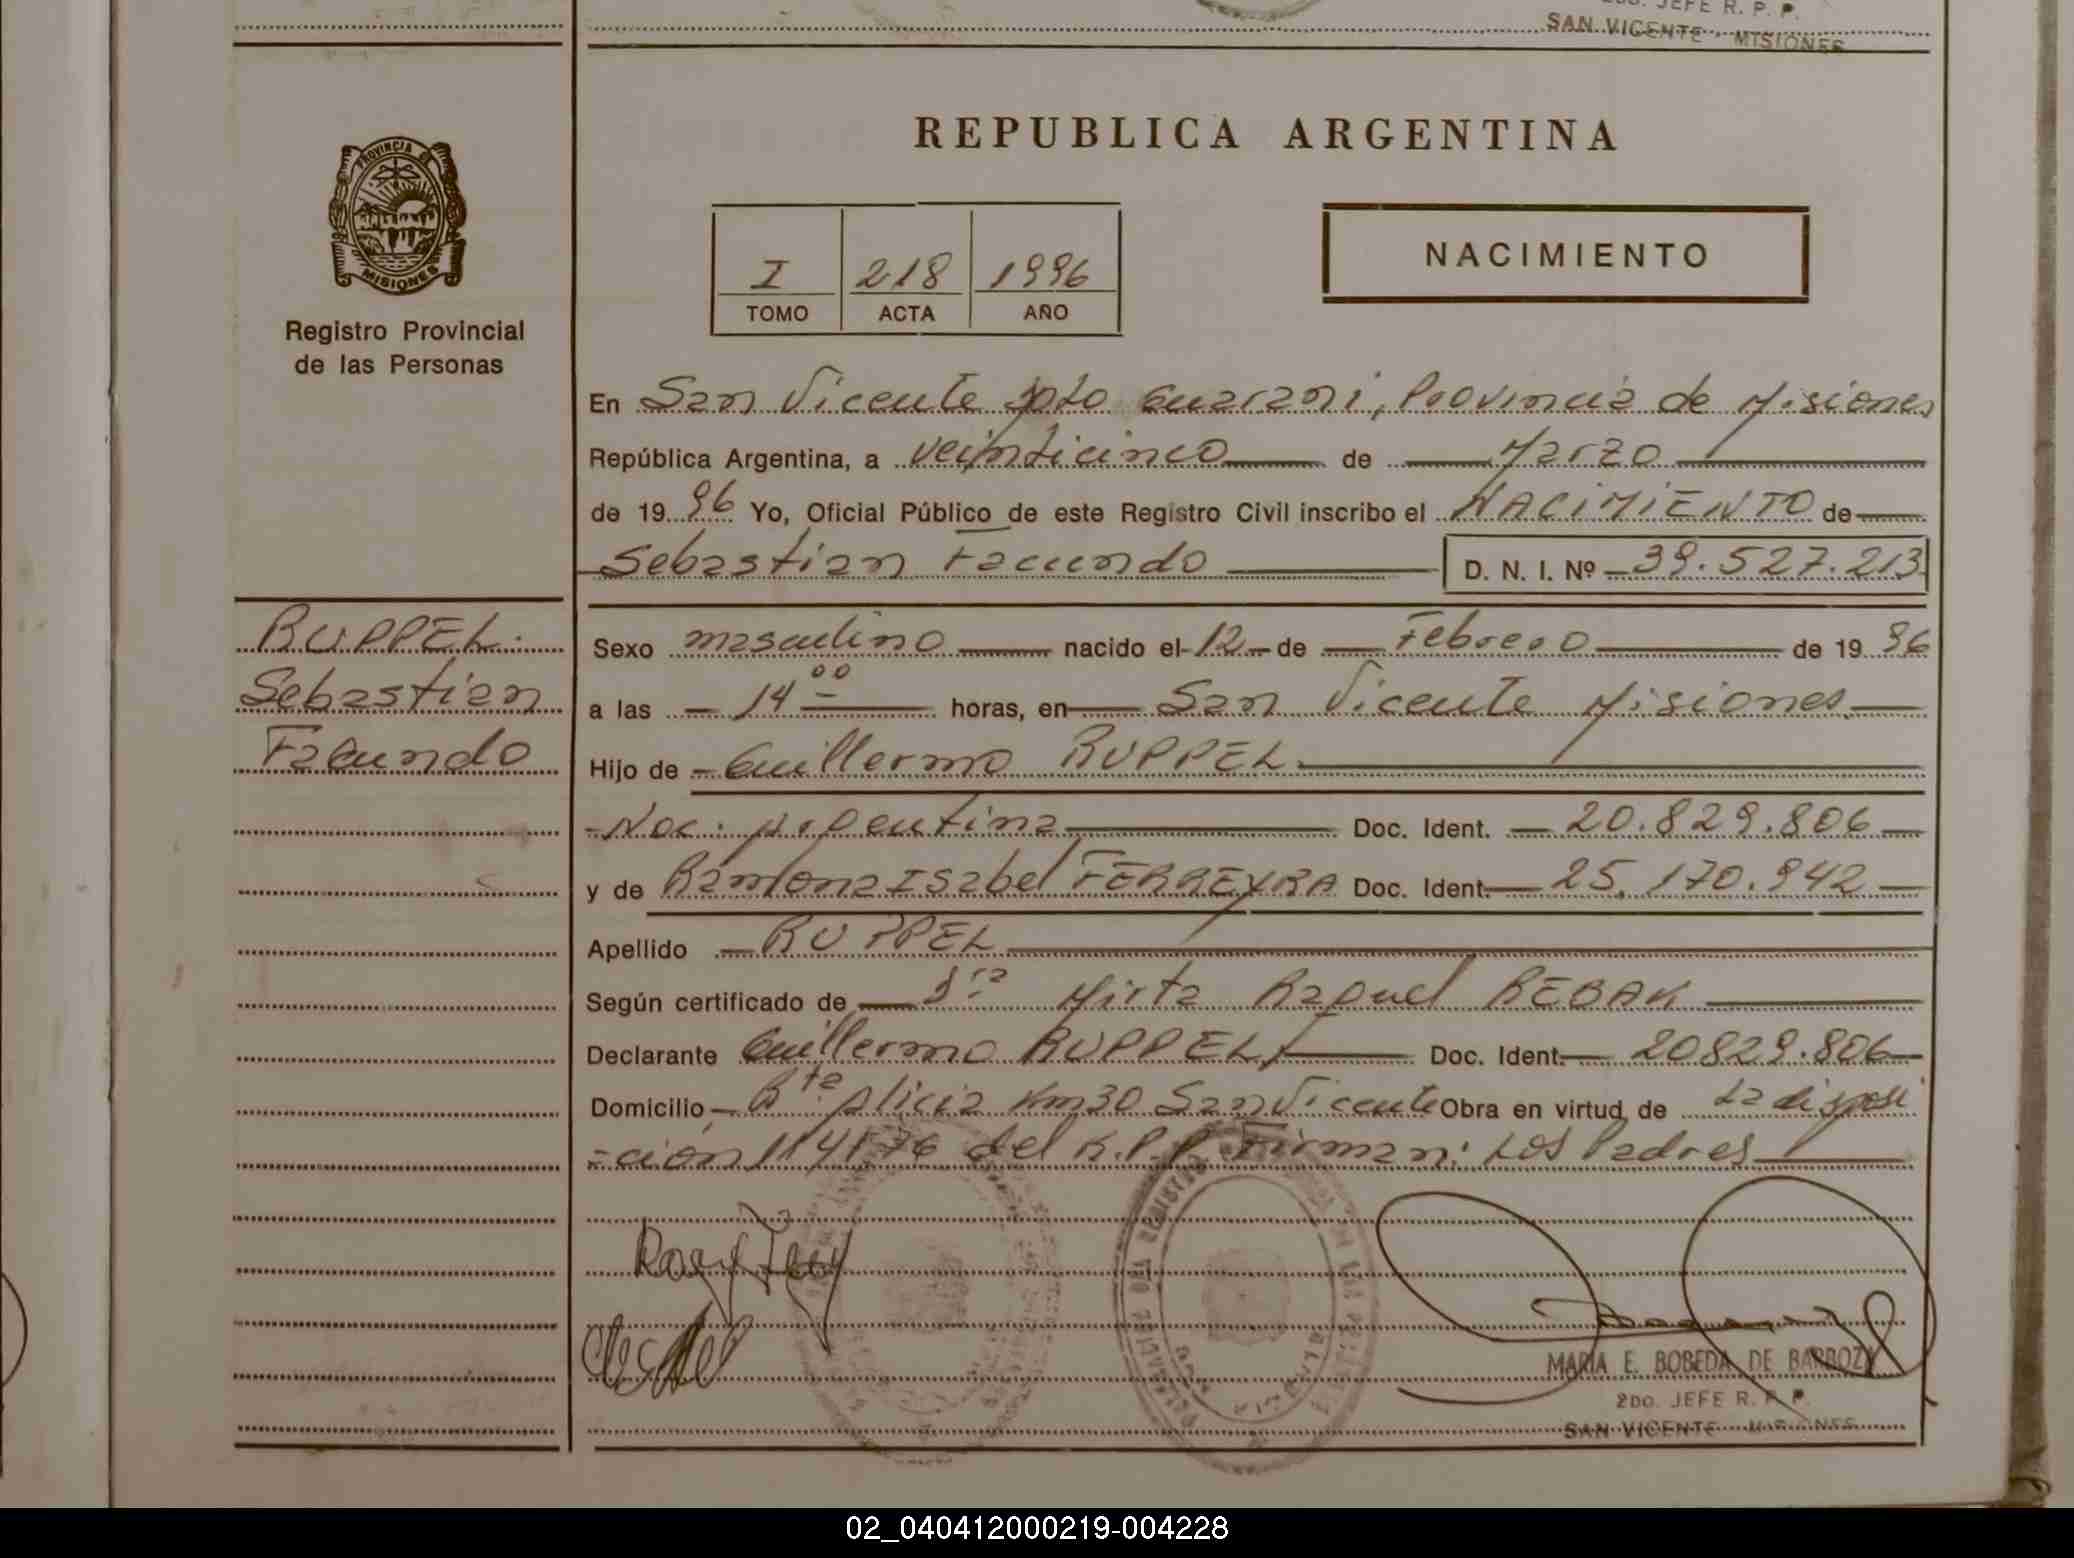 2DO. JEFE R. P. P.
SAN VICENTE - MISIONES
REPUBLICA ARGENTINA
PROVINCIA DE
MISIONES
Registro Provincial
de las Personas
I 218 1996
TOMO ACTA AÑO
NACIMIENTO
En San Vicente Dpto Guarani, Provincia de Misiones
República Argentina, a veinticinco de Marzo
de 1996 Yo, Oficial Público de este Registro Civil inscribo el NACIMIENTO de
Sebastian Facundo D. N. I. Nº 39.527.213
RUPPEL
Sebastian
Facundo
Sexo masculino nacido el 12 de Febrero de 1996
a las 14 00 horas, en San Vicente Misiones
Hijo de Guillermo RUPPEL
Nac. Argentina Doc. Ident. 20.829.806
y de Ramona Isabel FERREYRA Doc. Ident. 25.170.942
Apellido RUPPEL
Según certificado de Dra Mirta Raquel REBAK
Declarante Guillermo RUPPEL Doc. Ident. 20829.806
Domicilio Rta Alicia Km30 San Vicente Obra en virtud de La disposi
=ción 114/76 del R.P.P. Firman: Los Padres
MARIA E. BOBEDA DE BARBOZA
2DO. JEFE R. P. P.
SAN VICENTE - MISIONES
02_040412000219-004228